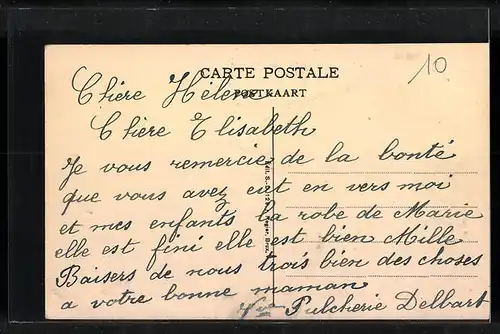 CARTE POSTALE
POSTKAART
10
Chère Hélène
Chère Elisabeth
Je vous remercie de la bonté
que vous avez eut en vers moi
et mes enfants la robe de Marie
elle est fini elle est bien Mille
Baisers de nous trois bien des choses
a votre bonne maman
Pulcherie Delbart